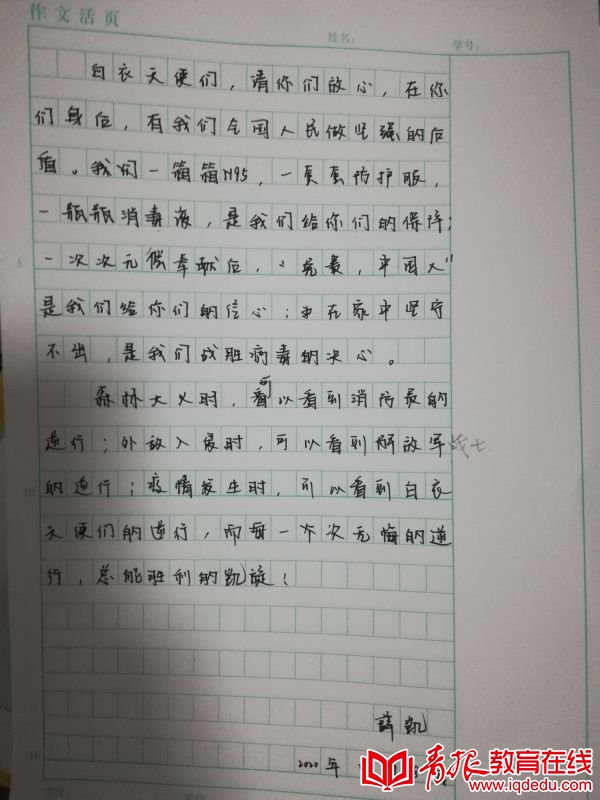 作文活页
姓名:
学号:
白衣天使们，请你们放心，在你
们身后，有我们全国人民做坚强的后
盾。我们一箱箱N95，一套套防护服，
一瓶瓶消毒液，是我们给你们的保障；
一次次无偿奉献后，"免责，中国人"
是我们给你们的信心；中在家中坚守
不出，是我们战胜病毒的决心。
森林大火时，可以看到消防员的
逆行；外敌入侵时，可以看到解放军战士
的逆行；疫情发生时，可以看到白衣
天使们的逆行，而每一个次无悔的逆
行，总能胜利的凯旋！
薛凯
2020年
5
10
青报教育在线
www.iqdedu.com